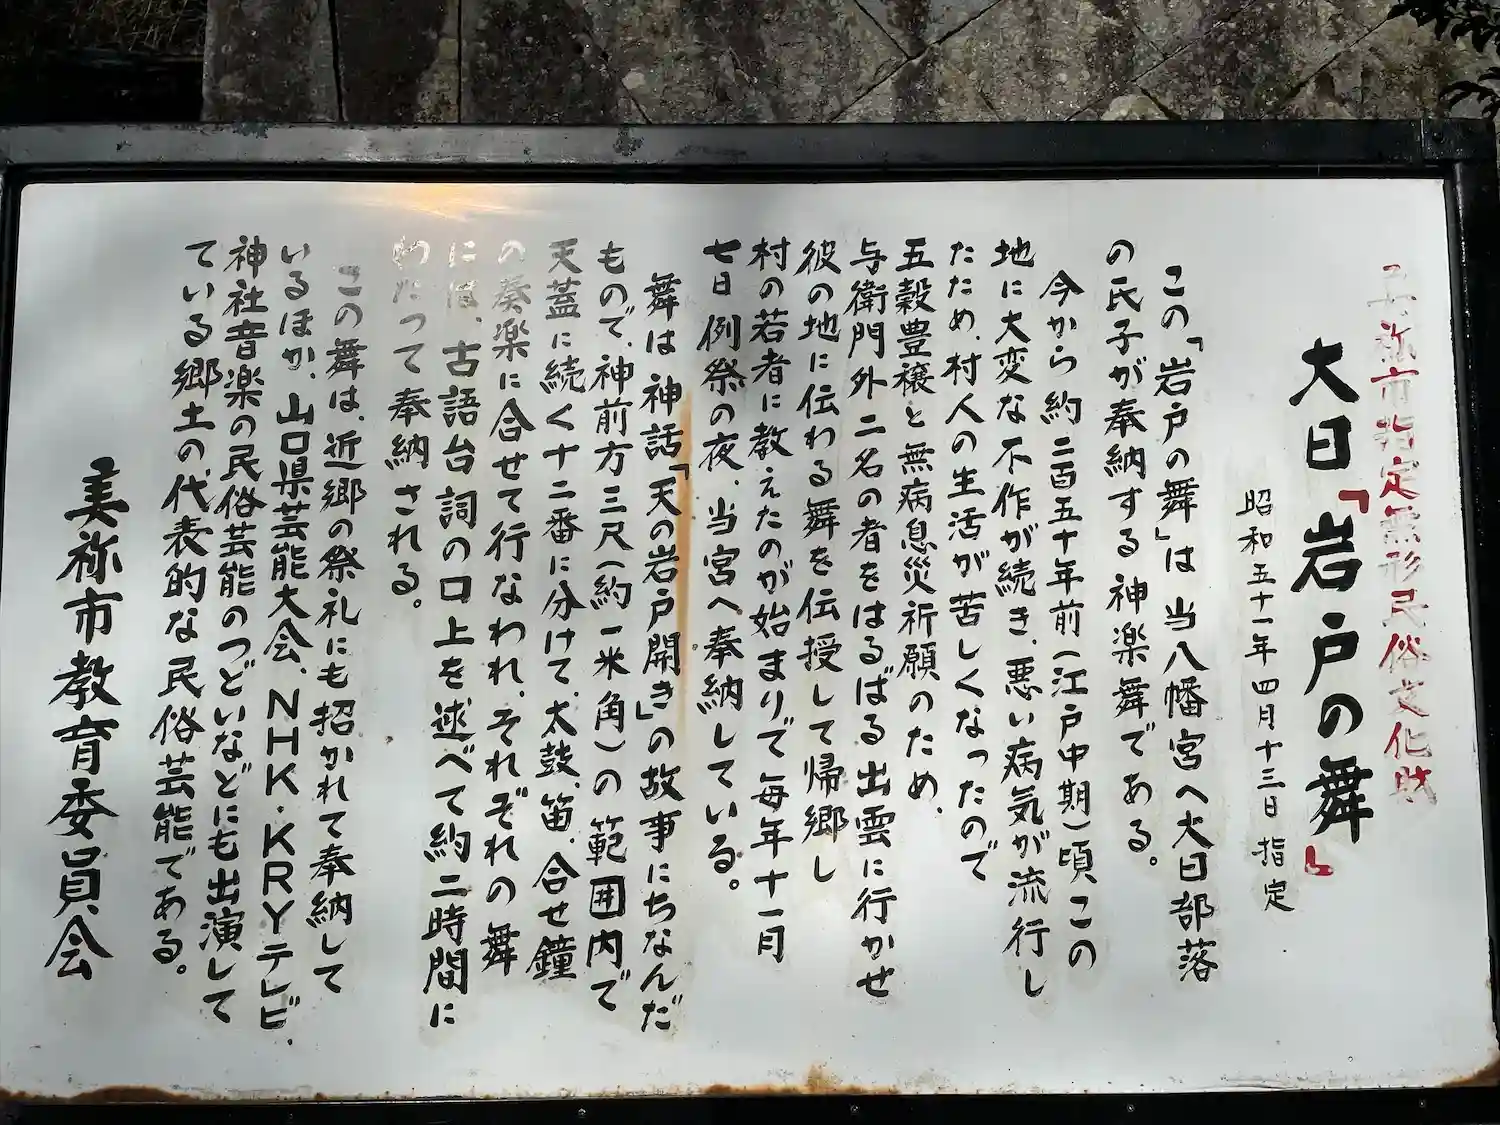 美祢市指定無形民俗文化財
大日「岩戸の舞」
昭和五十一年四月十三日 指定
この「岩戸の舞」は当八幡宮へ大日部落
の氏子が奉納する神楽舞である。
今から約二百五十年前(江戸中期)頃この
地に大変な不作が続き、悪い病気が流行し
たため、村人の生活が苦しくなったので
五穀豊穣と無病息災祈願のため、
与衛門外二名の者をはるばる出雲に行かせ
彼の地に伝わる舞を伝授して帰郷し
村の若者に教えたのが始まりで毎年十一月
七日例祭の夜、当宮へ奉納している。
舞は神話「天の岩戸開き」の故事にちなんだ
もので、神前方三尺(約一米角)の範囲内で
天蓋に続く十二番に分けて、太鼓、笛、合せ鐘
の奏楽に合せて行なわれ、それぞれの舞
には、古語台詞の口上を逑べて約二時間に
わたって奉納される。
この舞は、近郷の祭礼にも招かれて奉納して
いるほか、山口県芸能大会、NHK・KRYテレビ、
神社音楽の民俗芸能のつどいなどにも出演して
ている郷土の代表的な民俗芸能である。
美祢市教育委員会